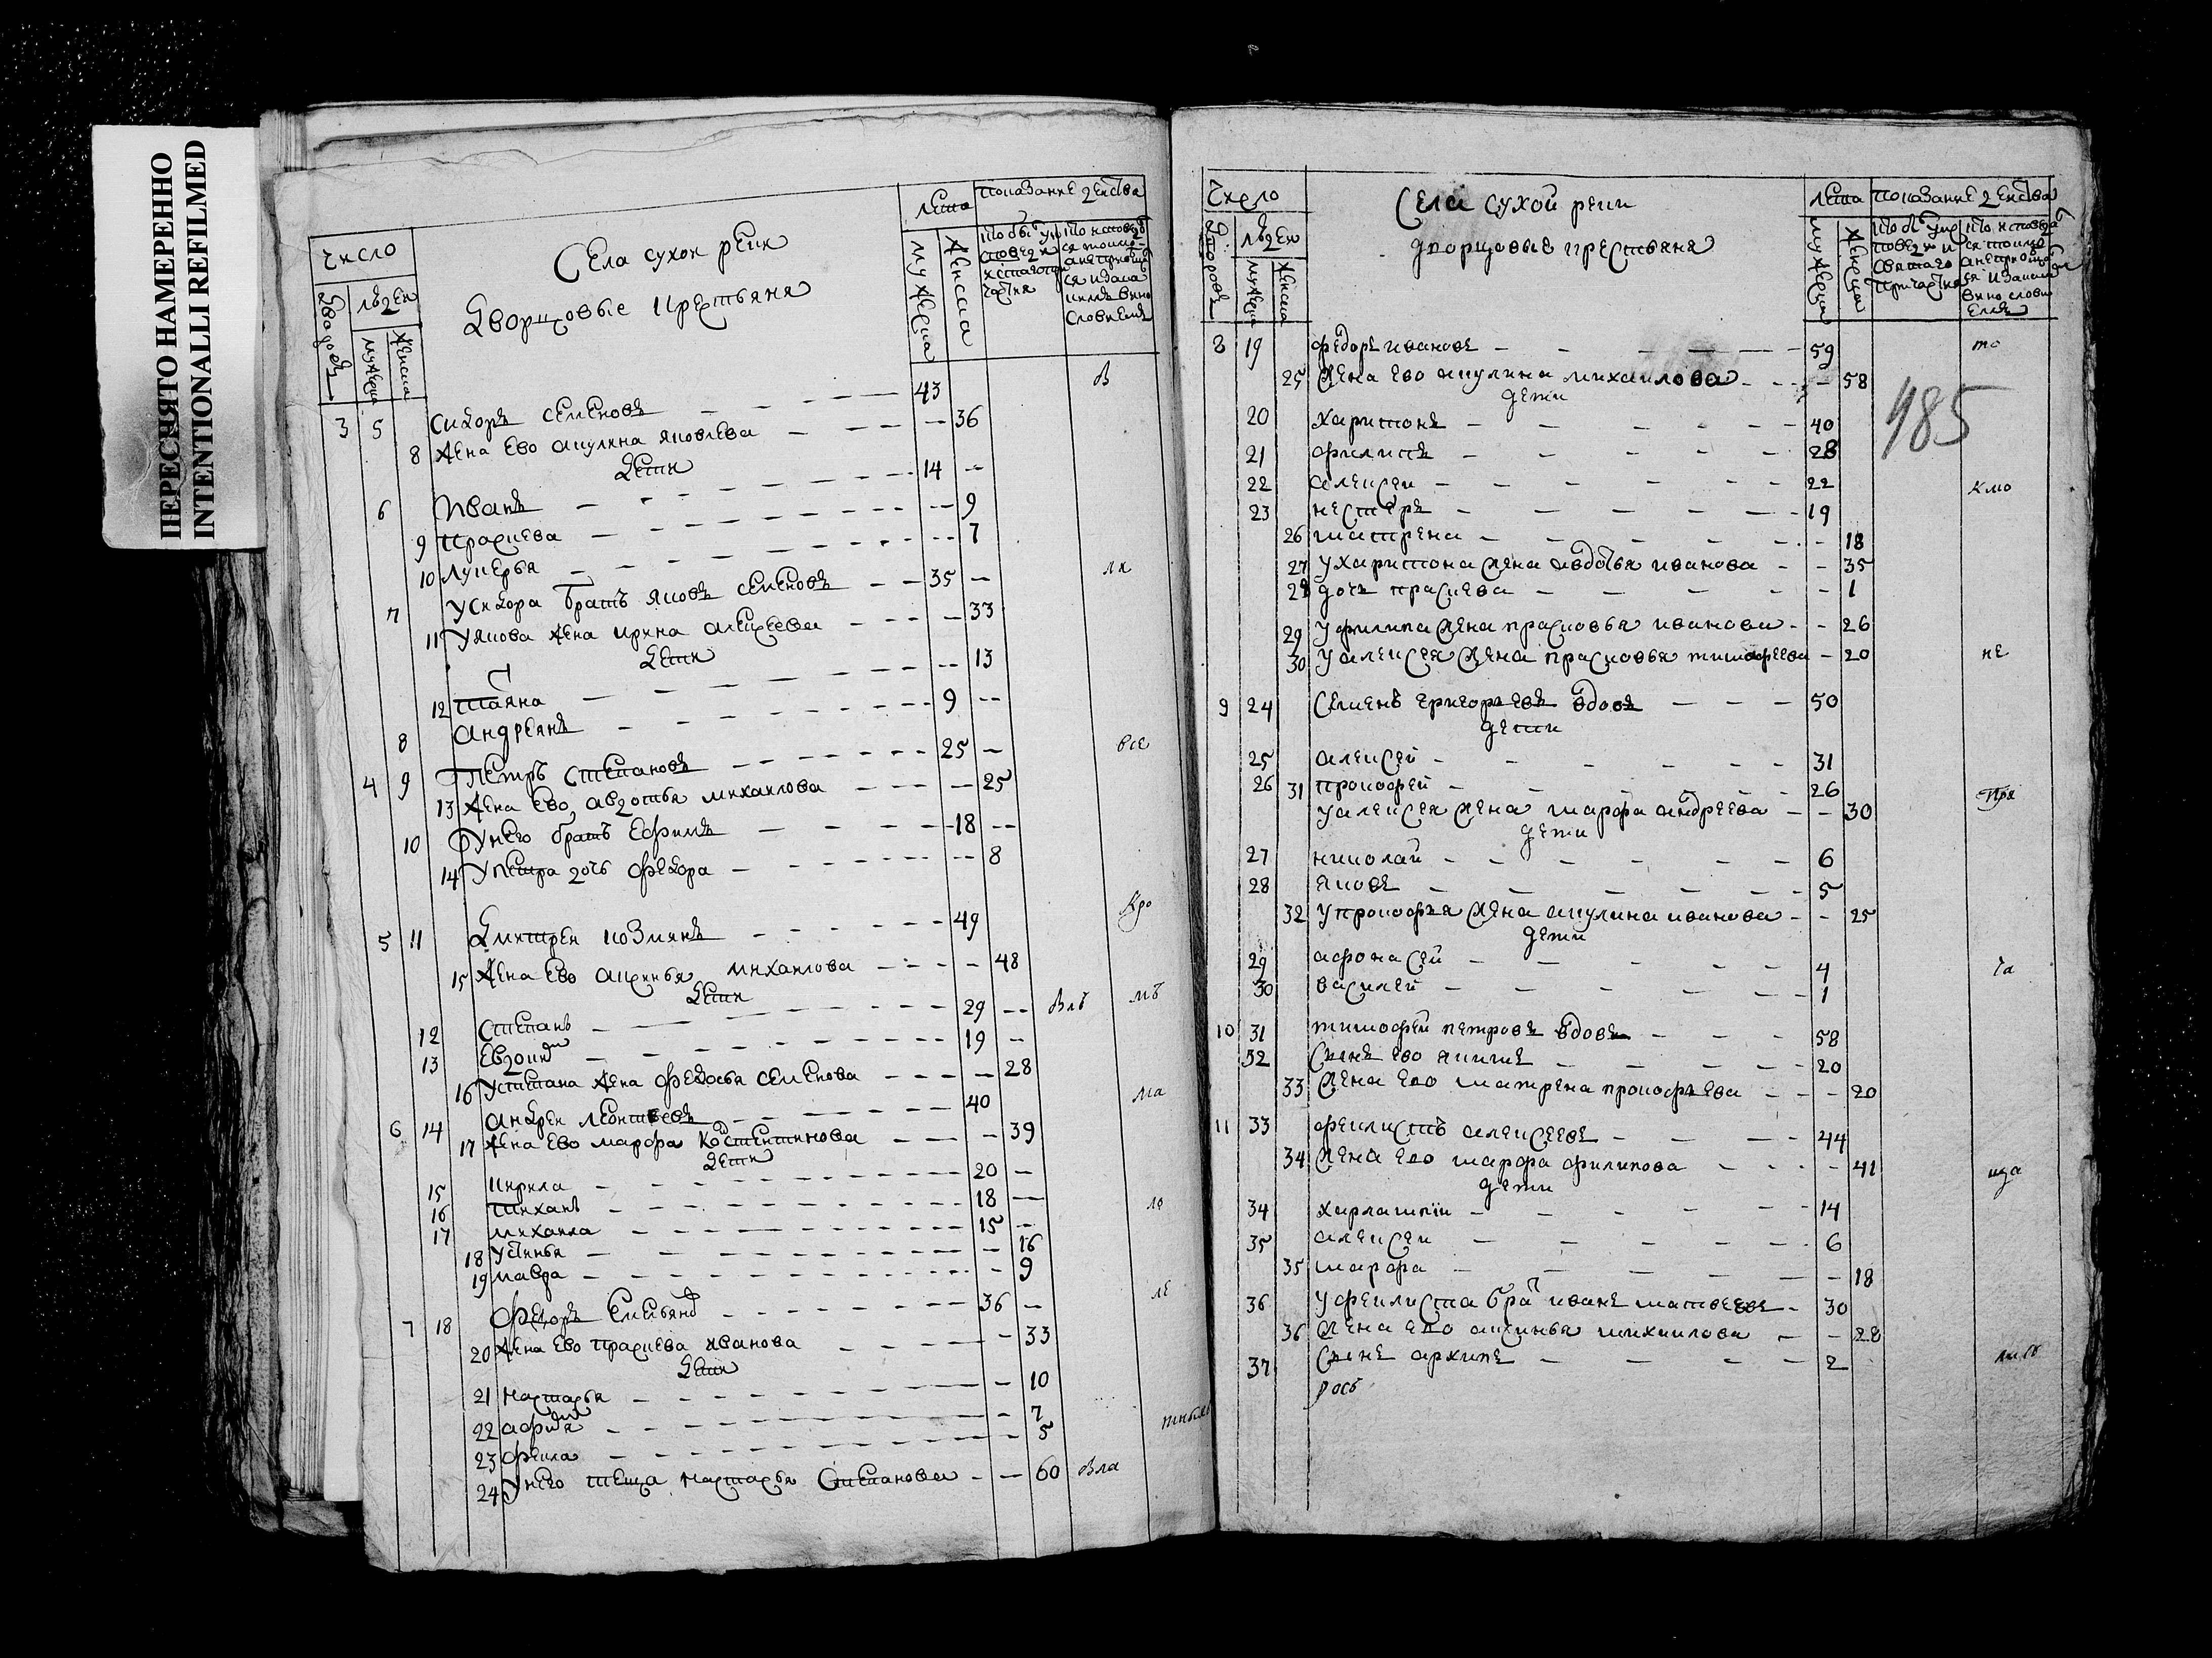 ПЕРЕСНЯТО НАМЕРЕННО
INTENTIONALLI REFILMED
число
людеи
дворовъ
мужеска
женска
Села сухои реки
Дворцовые крестьяня
лета
мужеска
женска
показание действа
3 5 Сидоръ семеновъ 43
8 жена ево акулина яковлева 36
Дети
6 Иванъ 14
9 праскева 9
10 лукерья 7
7 У сидора братъ яковъ семеновъ 35
11 У якова жена ирина алексеева 33
Дети
12 татяна 13
8 андреянъ 9
4 9 Петръ степановъ 25
13 жена ево авдотья михаилова 25
10 У него братъ ефимъ 18
14 У петра дочь федора 8
5 11 Дмитреи козминъ 49
15 жена ево аксинья михаилова 48
Дети
12 Степанъ 29
13 Евдоким 19
16 У степана жена федосья семенова 28
6 14 андреи леонтьевъ 40
17 жена ево марфа костентинова 39
Дети
15 кирила 20
16 тиханъ 18
17 михаила 15
18 устинья 16
19 мавра 9
7 18 Федоръ Емельянов 36
20 жена ево праскева иванова 33
Дети
21 настасья 10
22 афимя 7
23 фекла 5
24 У него теща настасья Степанова 60
Число
людеи
мужеска
женска
Села сухой реки
дворцовые крестьяня
лета
мужеска
женска
показание действа
8 19 федоръ ивановъ 59
25 Жена ево акулина михаилова 58
дети
20 харитонъ 40
21 филипъ 28
22 алексеи 22
23 нестеръ 19
26 матрена 18
27 У харитона жена авдотья иванова 35
28 дочь праскева 1
29 У филипа жена прасковья иванова 26
30 У алексея жена прасковья тимофеева 20
9 24 Семенъ григорьевъ вдовъ 50
дети
25 алексей 31
26 прокофей 26
31 У алексея жена марфа андреева 30
дети
27 николай 6
28 яковъ 5
32 У прокофья жена акулина иванова 25
дети
29 афонасей 4
30 василей 1
10 31 тимофей петровъ вдовъ 58
32 Сынъ ево якимъ 20
33 Жена ево матрена прокофьева 20
11 33 феклистъ алексеевъ 44
34 Жена ево марфа филипова 41
дети
34 харлампии 14
35 алексеи 6
35 марфа 18
36 У феклиста бра иванъ матвеевъ 30
36 Жена ево аксинья михаилова 28
37 Сынъ архипъ 2
485